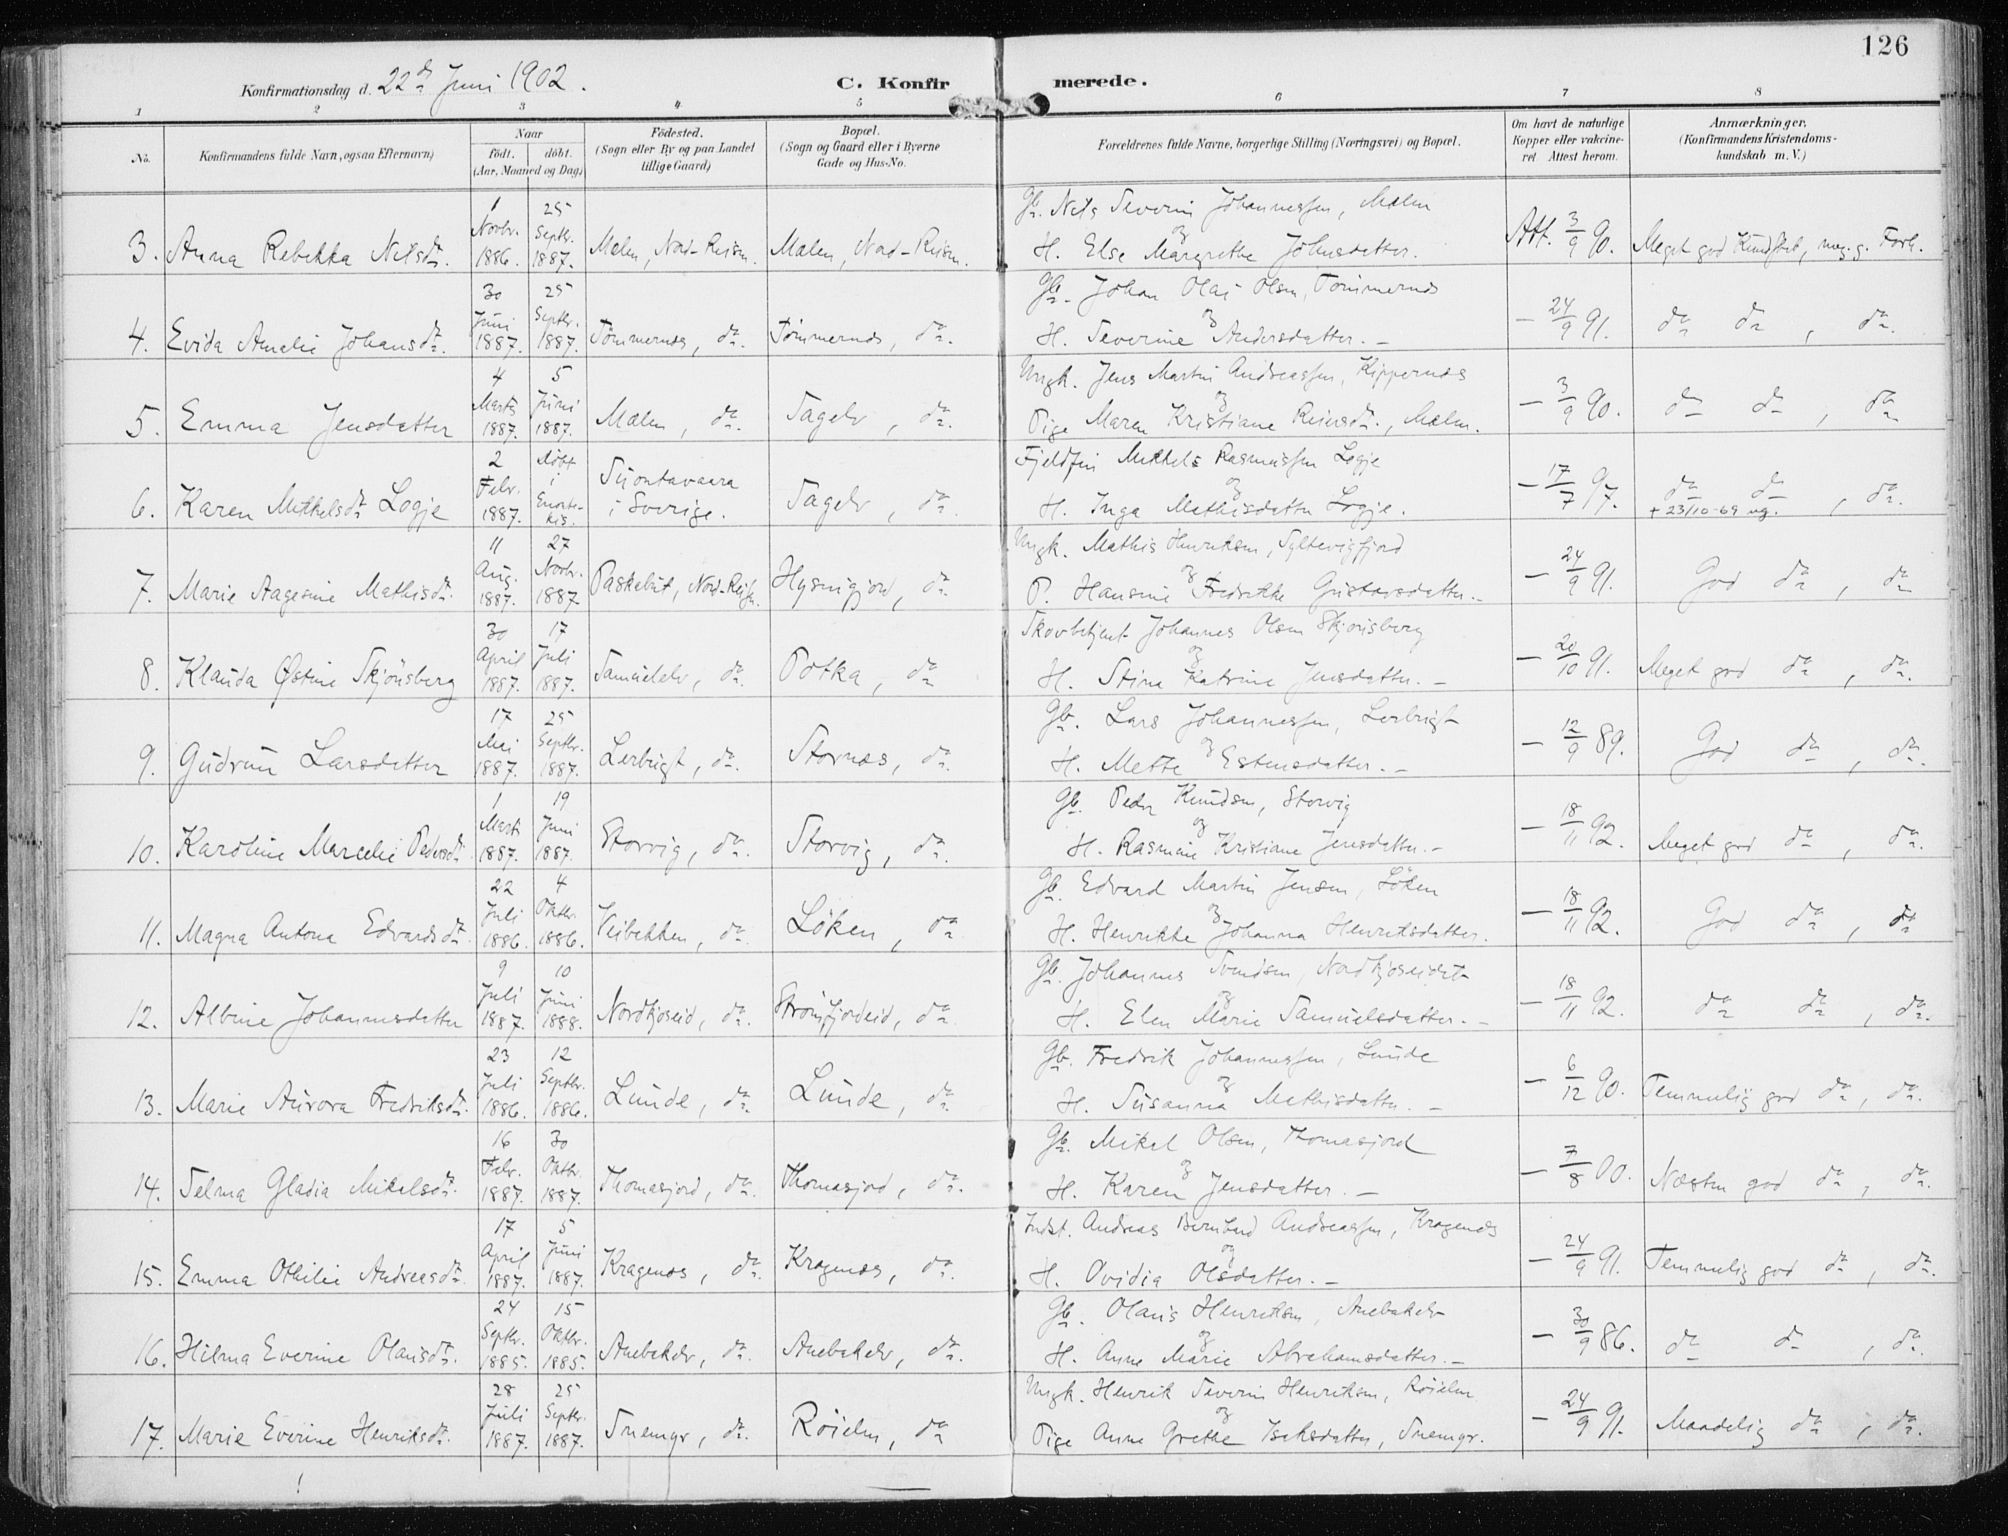 126
Konfirmationsdag d. 22de Juni 1902.
C. Konfirmerede.
1 2 3 4 5 6 7 8
No. Konfirmandens fulde Navn, ogsaa Efternavn) Naar født. døbt. (Aar, Maaned og Dag) Fødested. (Sogn eller By og paa Landet tillige Gaard) Bopæl. (Sogn og Gaard eller i Byerne Gade og Hus-No. Forældrenes fulde Navne, borgerlige Stilling (Næringsvei) og Bopæl. Om havt de naturlige Kopper eller vakcineret. Attest herom. Anmærkninger. (Konfirmandens Kristendomskundskab m. V.)
3. Anna Rebekka Nilsdtr. 1 Novbr. 1886. 25 Septbr. 1887. Malen, Nord-Reisen. Malen, Nord-Reisen. Gb. Nils Severin Johannessen, Malen og H. Else Margrethe Johnsdatter. Att. 3/9 90. Meget god Kundskab, meg. g. Forh.
4. Evida Amalie Johansdtr. 30 Juni 1887. 25 Septbr. 1887. Tømmernes, do. Tømmernes, do. Gb. Johan Olai Olsen, Tømmernes og H. Severine Andersdatter. — — 24/9 91. do do, do.
5. Emma Jensdatter 4 Marts 1887. 5 Juni 1887. Malen, do. Tagelv, do. Ungk. Jens Martin Andreassen, Kippernes og Pige Maren Kristiane Reiersdtr., Malen. — 3/9 90. do do, do
6. Karen Mikkelsdtr Logje 2 Febr. 1887. døbt i Enontekis. Suontavaara i Sverige. Tagelv, do. Fjeldfin Mikkel Rasmussen Logje og H. Inga Mathisdatter Logje. — 17/7 97. do do, do.
+ 23/10-69 ug.
7. Marie Aagesine Mathisdtr. 11 Aug. 1887. 27 Novbr. 1887. Paskebut, Nord-Reisen. Hysnigjord, do. Ungk. Mathis Henriksen, Syltevigfjord og P. Hansine Fredrikke Gustavsdatter. — — 24/9 91. God do, do
8. Klauda Østine Skjønsberg 30 April 1887. 17 Juli 1887. Samuelelv, do. Potka, do Skovbetjent Johannes Olsen Skjønsberg og H. Stina Katrine Jensdatter. — — 20/10 91. Meget god do, do.
9. Gudrun Larsdatter 17 Mai 1887. 25 Septbr. 1887. Lerbugt, do. Stornæs, do. Gb. Lars Johannessen, Lerbugt og H. Mette Estensdatter. — — 12/9 89. God do, do.
10. Karoline Marcelie Pedersdtr. 1 Marts 1887. 19 Juni 1887. Storvig, do. Storvig, do. Gb. Peder Knudsen, Storvig og H. Rasmine Kristiane Jensdatter. — — 18/11 92. Meget god do, do.
11. Magna Antona Edvardsdtr. 22 Juli 1886. 4 Oktbr. 1886. Veibakken, do. Løken, do. Gb. Edvard Martin Jensen, Løken og H. Henrikke Johanna Henriksdatter. — 18/11 92. God do, do
12. Albine Johannesdatter 9 Juli 1887. 10 Juni 1888. Nordkjoseid, do. Strømfjordeid, do. Gb. Johannes Svendsen, Nordkjoseidet og H. Elen Marie Samuelsdatter. — — 18/11 92. do do, do.
13. Marie Aurora Fredriksdtr. 23 Juli 1886. 12 Septbr. 1886. Lunde, do. Lunde, do. Gb. Fredrik Johannessen, Lunde og H. Susanna Mathisdatter. — — 6/12 90. Temmelig god do, do.
14. Selma Gladia Mikalsdtr. 16 Febr. 1887. 30 Oktbr. 1887. Thomasjord, do. Thomasjord, do. Gb. Mikal Olsen, Thomasjord og H. Karen Jensdatter. — — 7/8 00. Næsten god do, do.
15. Emma Othilie Andreasdtr. 17 April 1887. 5 Juni 1887. Kragenes, do. Kragenes, do. Indst. Andreas Bernhard Andreassen, Kragenes og H. Ovidia Olsdatter. — — 24/9 91. Temmelig god do, do.
16. Hilma Everine Olausdtr. 24 Septbr. 1885. 15 Oktbr. 1885. Anebakelv, do. Anebakelv, do. Gb. Olaus Henriksen, Anebakelv og H. Anne Marie Abrahamsdatter. — — 30/9 86. do do, do.
17. Marie Everine Henriksdtr. 28 Juli 1887. 25 Septbr. 1887. Snemyr, do. Røielen, do Ungk. Henrik Severin Henriksen, Røielen og Pige Anne Grethe Isaksdatter, Snemyr. — 24/9 91. Maadelig do, do.